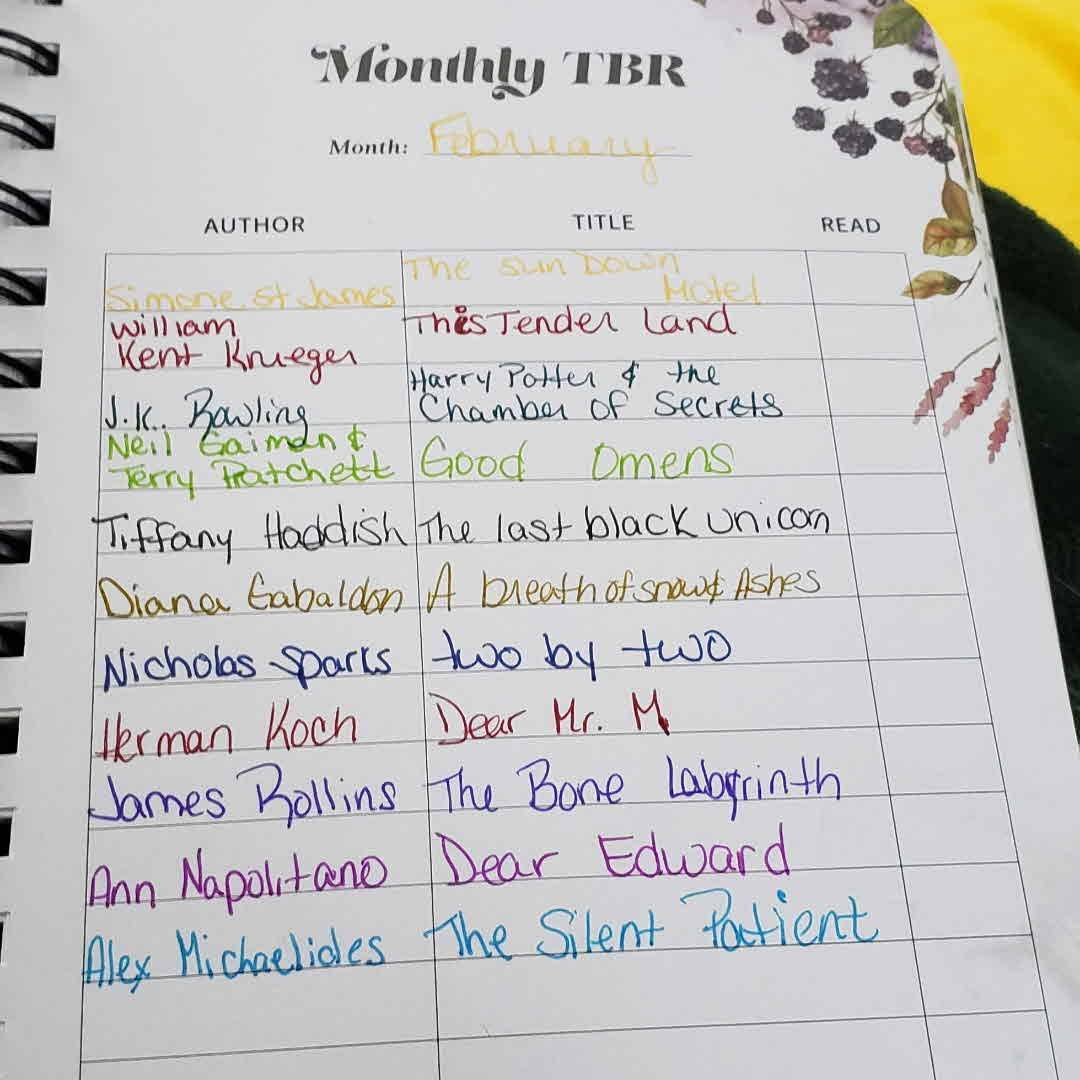 Monthly TBR
Month: February
AUTHOR TITLE READ
Simone St James The Sun Down Motel
William Kent Krueger This Tender Land
J.K. Rowling Harry Potter & the Chamber of Secrets
Neil Gaiman & Terry Pratchett Good Omens
Tiffany Haddish The last black unicorn
Diana Gabaldon A breath of snow & Ashes
Nicholas Sparks two by two
Herman Koch Dear Mr. M
James Rollins The Bone Labyrinth
Ann Napolitano Dear Edward
Alex Michaelides The Silent Patient